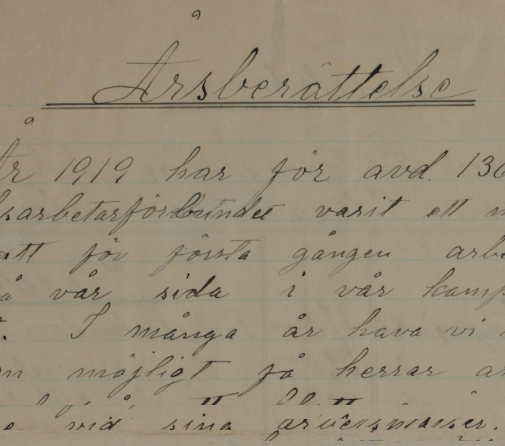 Årsberättelse
År 1919 har för avd. 136
sarbetarförbundet varit ett
att för första gången arbe
å vår sida i vår kamp
I många år hava vi
en möjligt få herrar a
vid sina